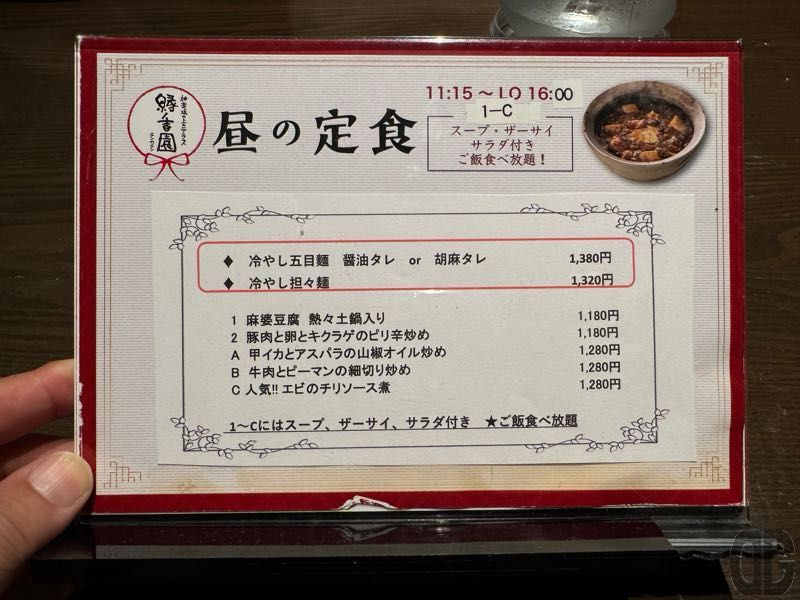 縁香園
昼の定食
11:15 ～ LO 16:00
1−C
スープ・ザーサイ
サラダ付き
ご飯食べ放題！
♦ 冷やし五目麺 醤油タレ or 胡麻タレ 1,380円
♦ 冷やし担々麺 1,320円
1 麻婆豆腐 熱々土鍋入り 1,180円
2 豚肉と卵とキクラゲのピリ辛炒め 1,180円
A 甲イカとアスパラの山椒オイル炒め 1,280円
B 牛肉とピーマンの細切り炒め 1,280円
C 人気!! エビのチリソース煮 1,280円
1～Cにはスープ、ザーサイ、サラダ付き ★ご飯食べ放題